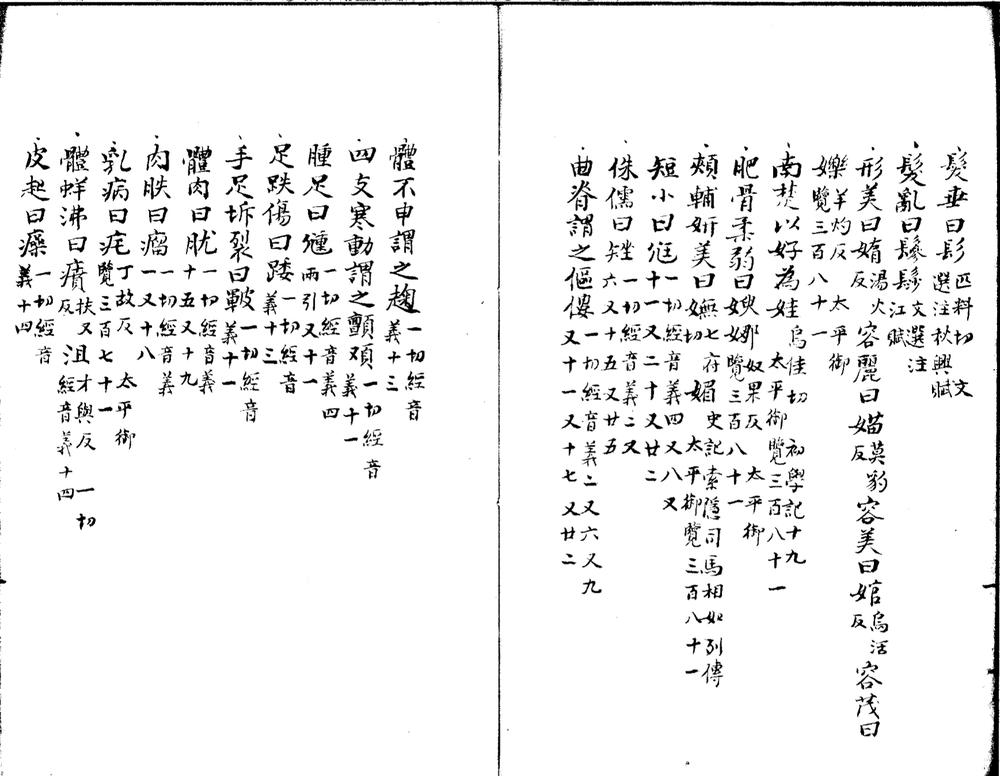 髮垂曰髟匹料切 文選注秋興賦
髮亂曰鬖髟文選注江賦
形美曰媠湯火反 容麗曰媌莫豹反 容美曰婠烏活反 容茂曰
嬫羊灼反 太平御覽三百八十一
南楚以好為娃烏佳切 初學記十九 太平御覽三百八十一
肥骨柔弱曰㛂娜奴果反 太平御覽三百八十一
頰輔姸美曰嫵七府媚史記索隱司馬相如列傳 太平御覽三百八十一
短小曰尫一切經音義四又八又十一又二十又廿二
侏儒曰矬一切經音義二又六又十五又廿五
曲脊謂之傴僂一切經音義二又六又九又十一又十七又廿二
體不申謂之趜一切經音義十三
四支寒動謂之顫頄一切經音義十一
腫足曰尰一切經音義四兩引又十一
足跌傷曰踒一切經音義十三
手足坼裂曰皸一切經音義十一
體肉曰肬一切經音義十五又十九
肉胅曰瘤一切經音義一又十八
乳病曰㽱丁故反 太平御覽三百七十一
體蛘沸曰㿉扶又反 沮才與反 一切經音義十四
皮起曰㿔一切經音義十四